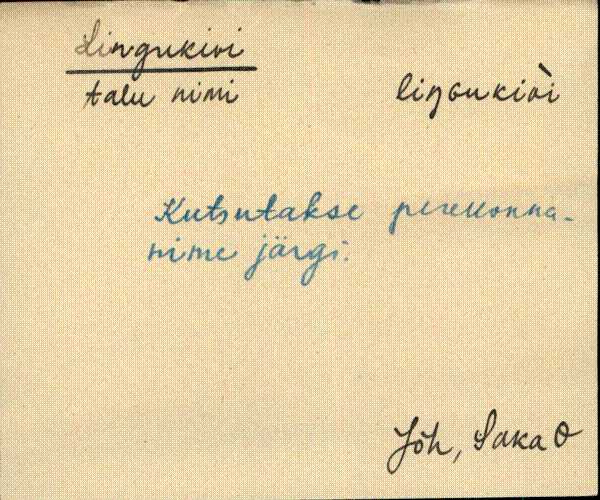 Lingukivi
talu nimi
liŋɢukivì
Kutsutakse perekonna-
nime järgi.
Jõh, Saka O